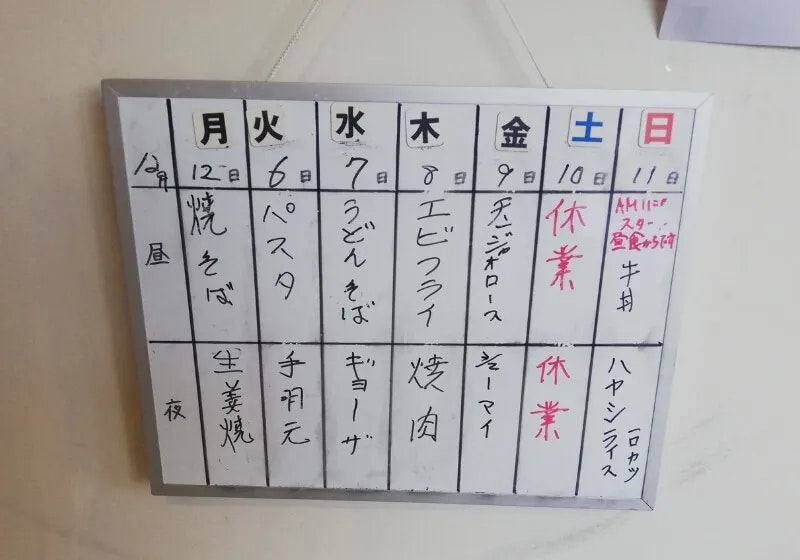 月 火 水 木 金 土 日
12月 12日 6日 7日 8日 9日 10日 11日
昼
焼そば
パスタ
うどんそば
エビフライ
チンジャオロース
休業
AM11:00
スタート
昼食からです
牛丼
夜
生姜焼
手羽元
ギョーザ
焼肉
シューマイ
休業
ハヤシライス
一口カツ